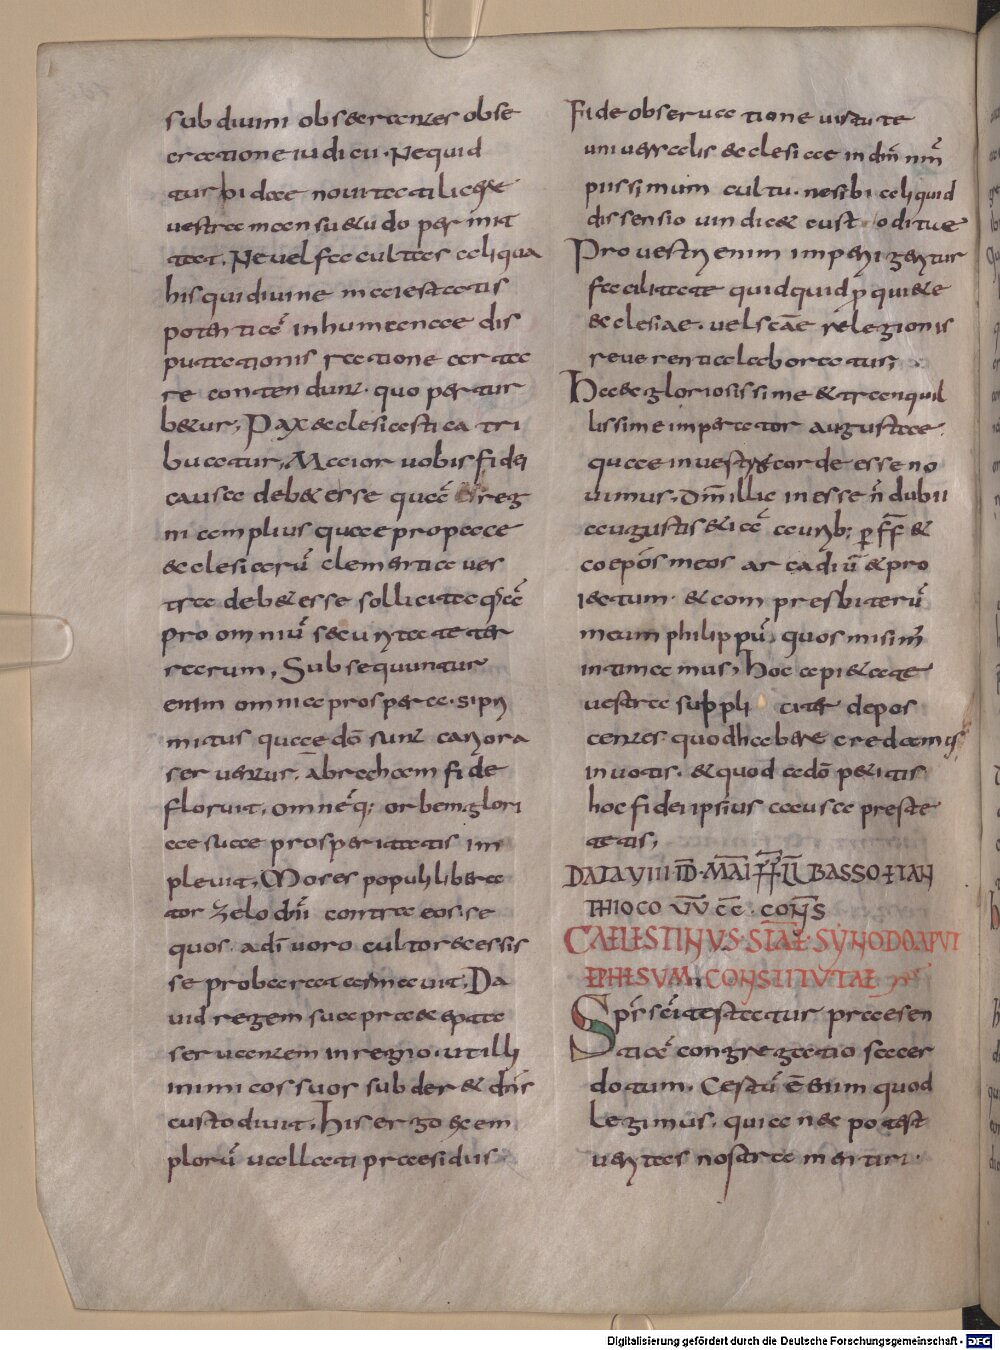 sub divini observantes obse
cratione iudicii. Ne quid
turbidae novitati licere
vestra mansu&udo permit
tat. Ne vel facultas aliqua
his qui divine maiestatis
potentiā in humanae dis
putationis ratione certa
re contendunt. quo pertur
b&ur. Pax ecclesiastica tri
buatur. Maior vobis fidei
causa deb& esse quā reg
ni amplius quae pro pace
&clesiarū clementia ves
tra deb& esse sollicita qā
pro omniū securitate ter
rarum. Subsequuntur
enim omnia prospera. si pri
mitus quae dō sunt cariora
serventur. abraham fide
floruit. omnēq; orbem glori
ae suae prosperitatis im
plevit. Moses populi libera
tor zelo dnī contra eos se
quos a dī voro cultor&essis
se probarat armavit. Da
vid regem sua prae&epta
servantem in regio. ut illi
inimicos suos subder& dn̄s
custodivit. his ergo exem
plorū vallati praesidiis
Fide observatione virtute
universalis &clesiae in dn̄m nrm̄
piissimum cultu. ne sibi aliquid
dissensio vindic& custoditue
Pro vestri enim imperii gentur
facilitate quidquid p qui&e
&clesiae. vel scāe relegionis
reverentia laboratur;
Haec gloriosissime & tranquil
lissime imperator auguste
quae in vestro corde esse no
vimus. dm̄ illic inesse n̄ dubii
augustis &iā aurib; p ff̄ &
coepōs meos arcadiū & pro
iectum. & com presbiterū
meum philippū. quos misim̄
intimamus. hoc a pi&ate
vestra suppliciter depos
centes quod habere credamus
in votis. & quod ad dō petitis
hoc fidei ipsius causa preste
tetis;
DATA VIII ID. MAI FF LL BASSO ET AN
THIOCO VV CC. CONS
CAELESTINUS SCAE SYNODO APUT
EPHESUM CONSTITUTAE
Spīrs scī testatur praesen
tiā congregatio sacer
dotum. Certū ē enim quod
legimus. quia nec potest
veritas nostra mentiri.
Digitalisierung gefördert durch die Deutsche Forschungsgemeinschaft - DFG